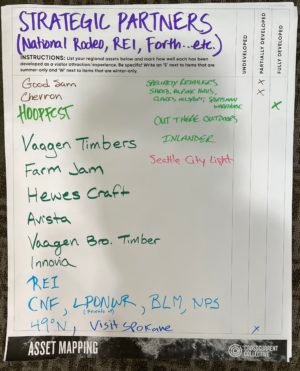 STRATEGIC PARTNERS
(National Rodeo, REI, Forth...etc.)
INSTRUCTIONS: List your regional assets below and mark how well each has been
developed as a visitor attraction/experience. Be specific! Write an 'S' next to items that are
summer-only and 'W' next to items that are winter-only.
UNDEVELOPED
PARTIALLY DEVELOPED
FULLY DEVELOPED
Good Sam
Chevron
HOOPFEST
SPECIALTY RETAILERS
X
X
X
OUT THERE OUTDOORS
INLANDER
Seattle City Light
Vaagen Timbers
Farm Jam
Hewes Craft
Avista
Vaagen Bro. Timber
Innovia
REI
CNF, LPONWR, BLM, NPS
(Friends of)
49°N, Visit Spokane
X
ASSET MAPPING
CROSSCURRENT
COLLECTIVE